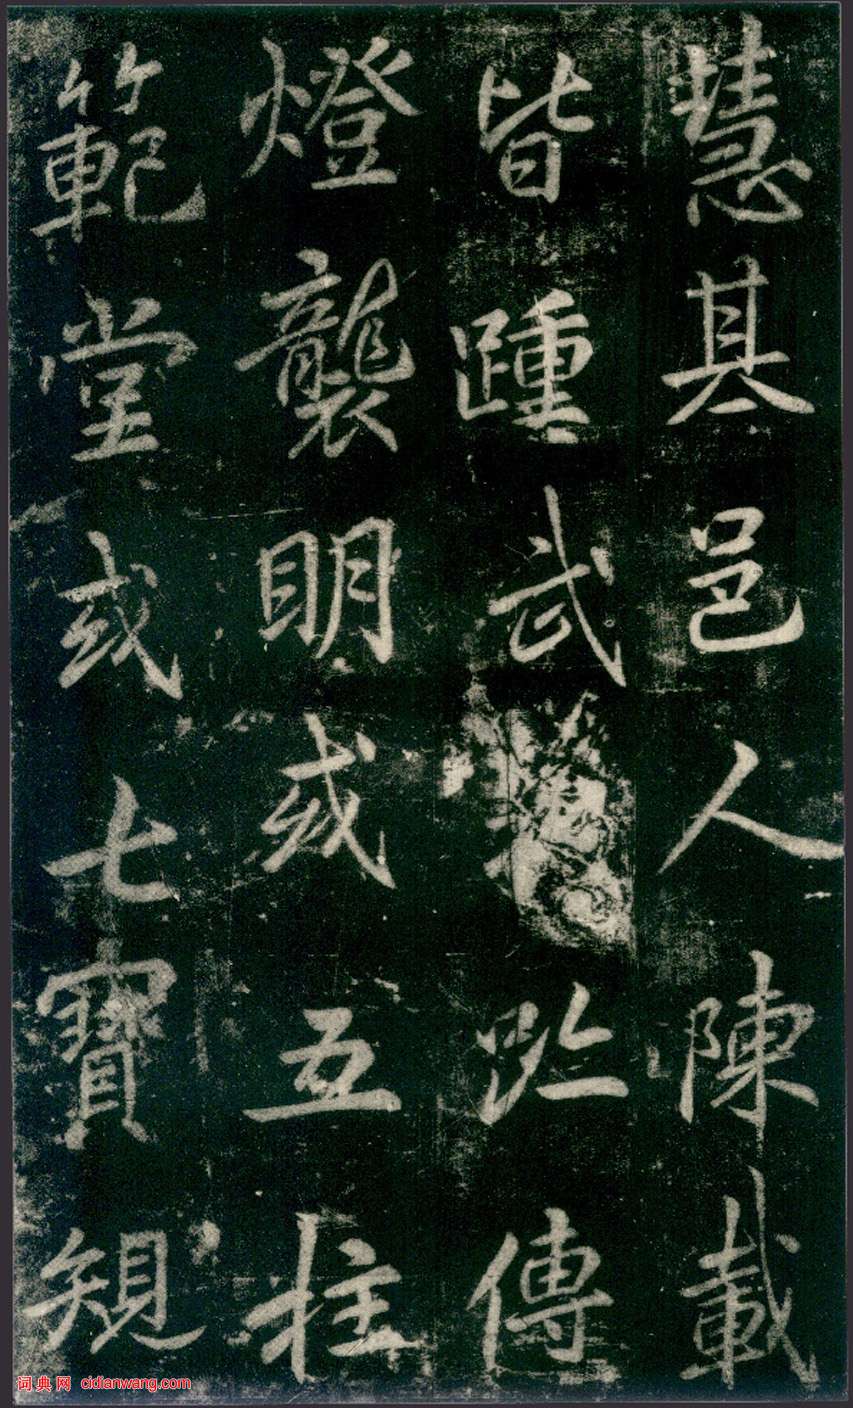 慧基邑人陳載
皆踵武趾傳
燈襲明或五柱
範堂或七寶規
词典网 cidianwang.com